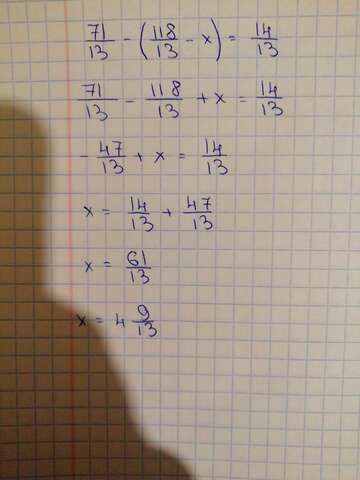 71/13 - (118/13 - x) = 14/13
71/13 - 118/13 + x = 14/13
- 47/13 + x = 14/13
x = 14/13 + 47/13
x = 61/13
x = 4 9/13